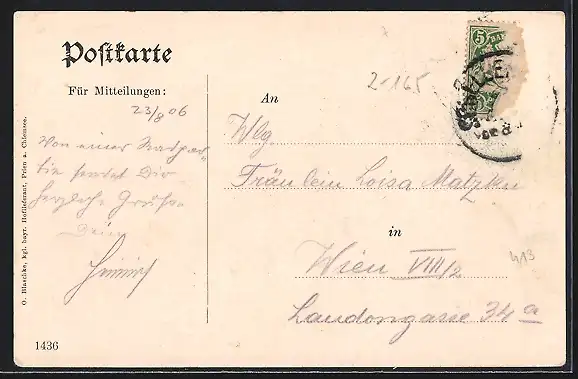 Postkarte
Für Mitteilungen:
23/8 06
Von einer Radpar-
tie sendet Dir
herzliche Grüße
Dein
Heinrich
An
Wlg.
Fräulein Loisa Matzka
in
Wien VIII/2
Laudongasse 34a
5
BAY
2-165
413
O. Blaschke, kgl. bayr. Hoflieferant, Prien a. Chiemsee.
1436